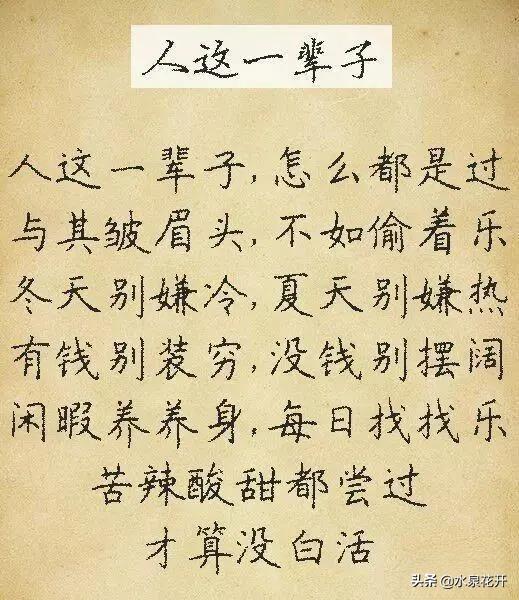 人这一辈子
人这一辈子,怎么都是过
与其皱眉头,不如偷着乐
冬天别嫌冷,夏天别嫌热
有钱别装穷,没钱别摆阔
闲暇养养身,每日找找乐
苦辣酸甜都尝过
才算没白活
头条 @水泉花开